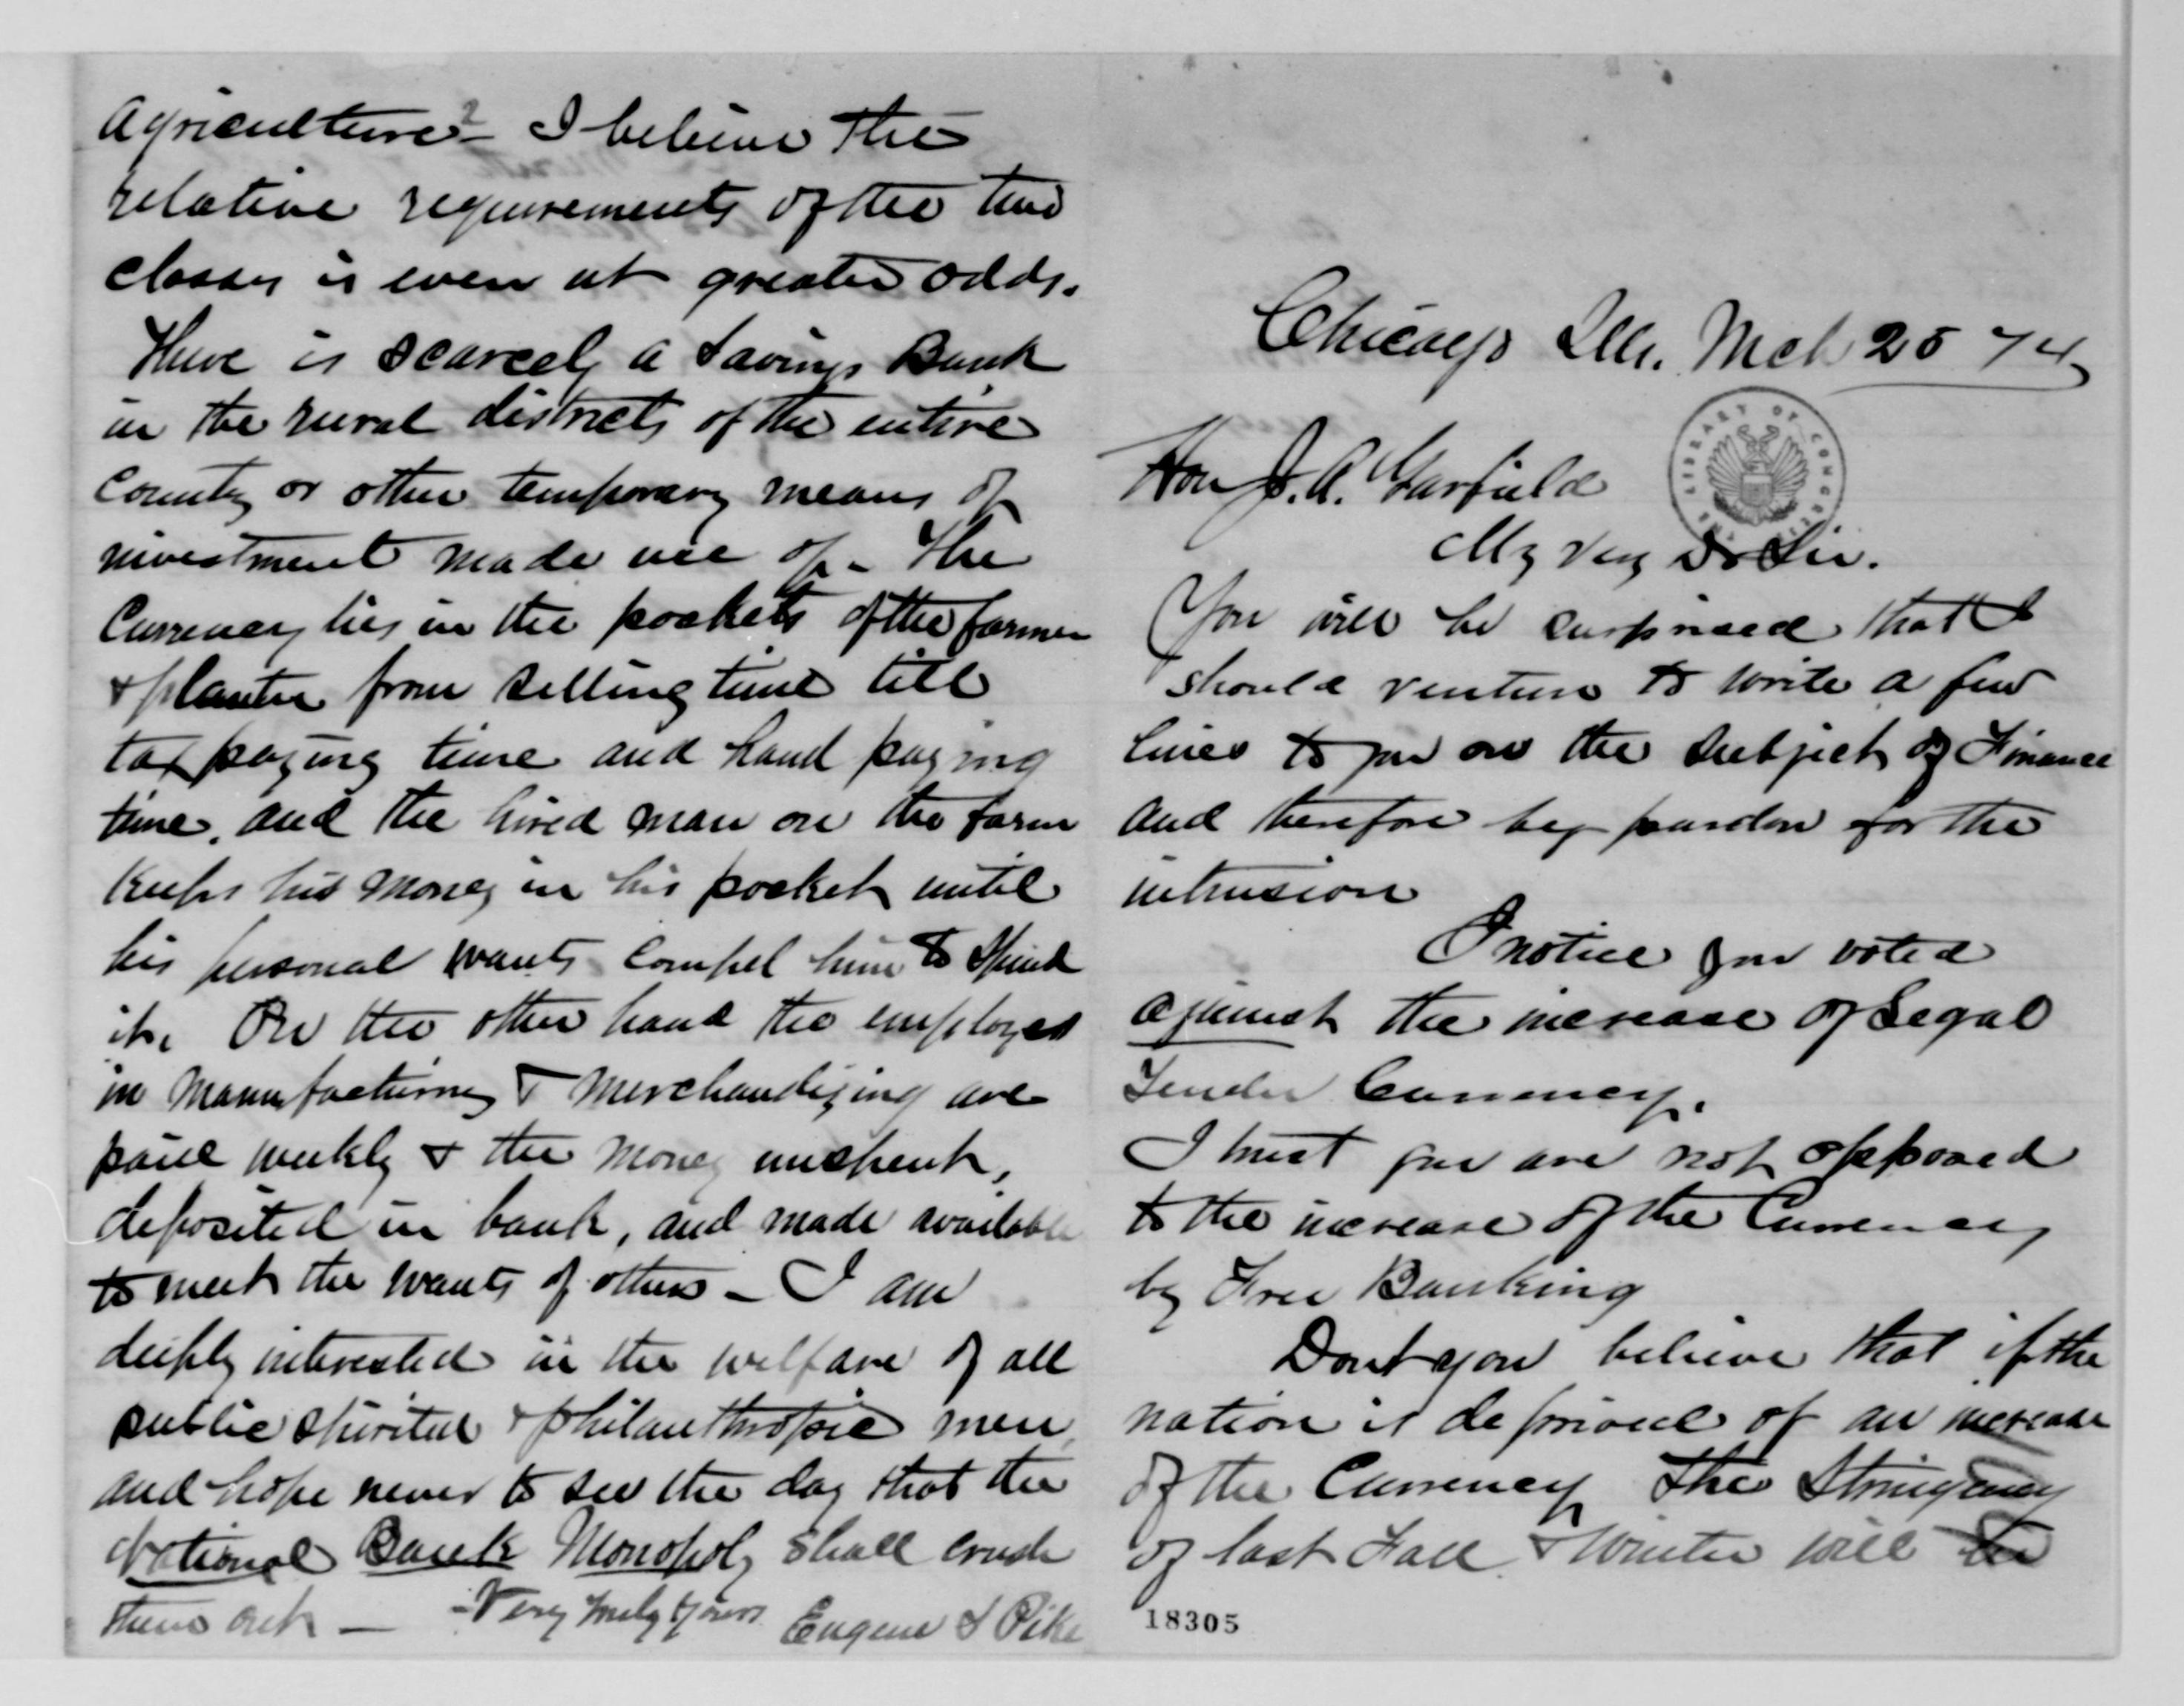 agriculture? - I believe the
relative requirements of the two
classes is even at greater odds.
There is scarcely a Savings Bank
in the rural districts of the entire
Country or other temporary means of
investment made use of - The
Currency lies in the pockets of the farmer
& planter from selling time till
tax paying time and hand paying
time, and the hired man on the farm
keeps his money in his pocket until
his personal wants compel him to spend
it. On the other hand the employes
in manufacturing & merchandizing are
paid weekly & the money unspent,
deposited in bank, and made available
to meet the wants of others - I am
deeply interested in the welfare of all
public spirited & philanthropic men
and hope never to see the day that the
National Bank Monopoly shall crush
them out —
- Very truly yours
Eugene S Pike
Chicago Ills. Mch 25 74
Hon J. A. Garfield
THE LIBRARY OF CONGRESS
My Very Dr Sir.
You will be surprised that I
should venture to write a few
lines to you on the subject of Finance
and therefore beg pardon for the
intrusion
I notice you voted
against the increase of Legal
Tender Currency.
I trust you are not opposed
to the increase of the Currency
by Free Banking
Dont you believe that if the
nation is deprived of an increase
of the Currency The Stringency
of last Fall & Winter will be
18305